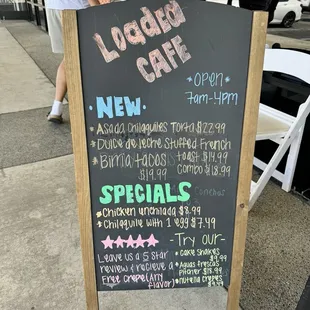 Loaded
CAFE
*OPEN*
7am-4pm
*NEW*
*Asada Chilaquiles Torta $22.99
*Dulce de leche Stuffed French
toast $14.99
*Birria tacos
$19.99
Combo $18.99
SPECIALS
*Chicken unchilada $8.99
*Chilaquile with 1 egg $7.49
Leave us a 5 Star
review & recieve a
Free Crepe (Any
flavor)
-Try our-
*Cake Shakes
$9.99
*Aguas Frescas
Pitcher
*Nutella Crepes